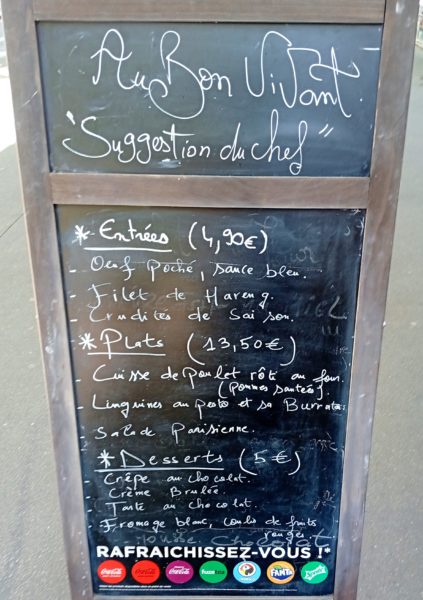 Au Bon Vivant
"Suggestion du chef"
* Entrées (4,90€)
- Oeuf Poché, sauce bleu.
- Filet de Hareng.
- Crudités de Saison.
* Plats (13,50€)
- Cuisse de poulet rôti au four.
(Pommes sautées).
- Linguines au pesto et sa Burrata.
- Salade Parisienne.
* Desserts (5€)
- Crêpe au chocolat.
- Crème Brulée.
- Tarte au chocolat.
- Fromage blanc, coulis de fruits
rouges
Mousse Chocolat
RAFRAICHISSEZ-VOUS !*
Coca-Cola Coca-Cola Coca-Cola fuzetea FANTA Sprite